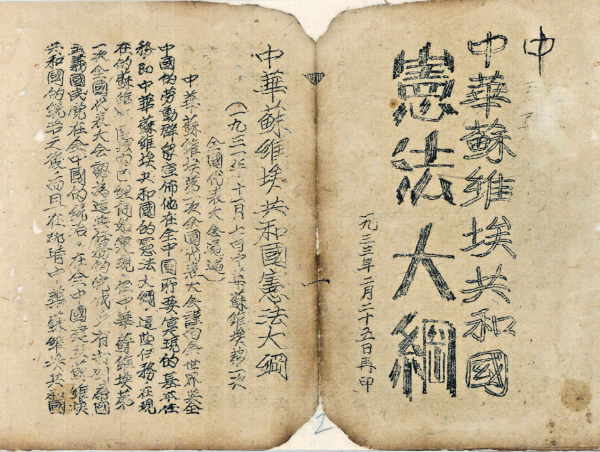 中
中華蘇維埃共和國
憲法大綱
一九三三年二月二十五日再印
中華蘇維埃共和國憲法大綱
(一九三一年十一月七日中華蘇維埃第一次
全國代表大會通過)
中華蘇維埃第一次全國代表大會謹向全世界與全
中國的勞動群眾宣佈他在全中國所要實現的基本任
務即中華蘇維埃共和國的憲法大綱,這些任務在現
在的蘇維埃區域內已經開始實現但中華蘇維埃第
一次全國代表大會認為這些任務的完成只有在打倒帝國
主義國民黨在全中國的統治,在全中國建立蘇維埃
共和國的統治之後而且在那時中華蘇維埃共和國
2